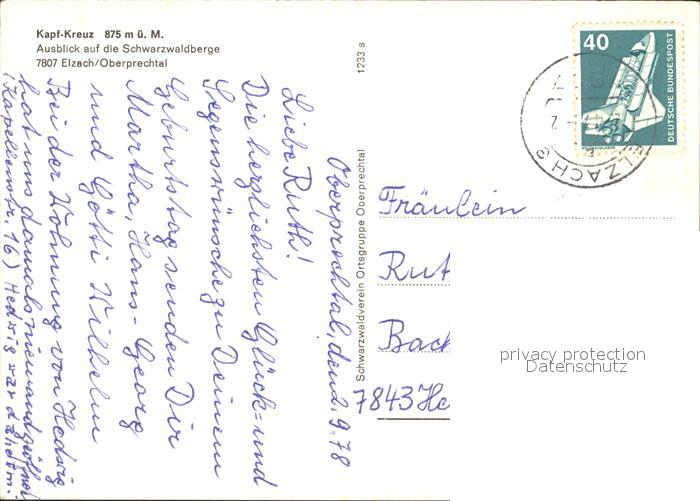 Kapf-Kreuz 875 m ü. M.
Ausblick auf die Schwarzwaldberge
7807 Elzach/Oberprechtal
1233 s
Schwarzwaldverein Ortsgruppe Oberprechtal
40
DEUTSCHE BUNDESPOST
ELZACH
Oberprechtal, den 2.9.78
Liebe Ruth!
Die herzlichsten Glück- und
Segenswünsche zu Deinem
Geburtstag senden Dir
Martha, Hans-Georg
und Götti Wilhelm
Bei der Wohnung von Hedwig
hat uns damals niemand geöffnet
(Kapellenstr. 16) Hedwig war
Fräulein
Rut
Bach
7843 He
privacy protection
Datenschutz